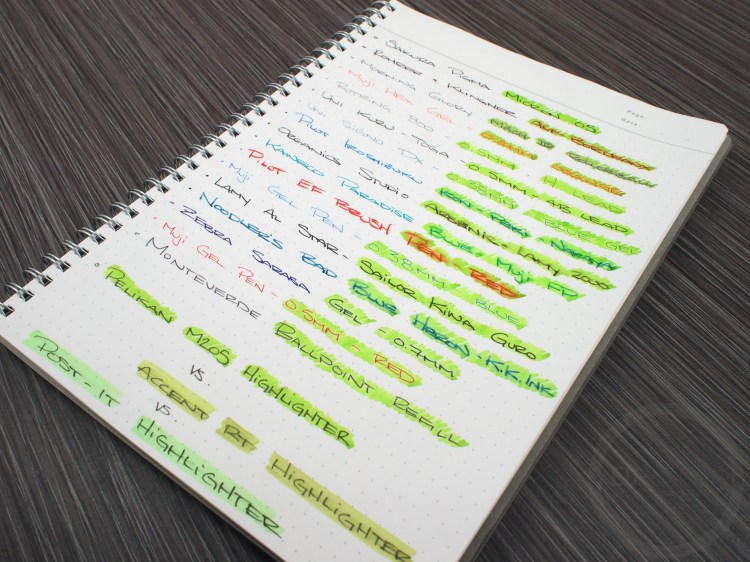 Page.
Date.
SAKURA PIGMA MICRON 05
ROHRER & KLINGNER
MORNING GLORY MACH III
MUJI HEX GEL -
ROTRING 800 - 0.5MM - H LEAD
UNI KURU-TOGA - 0.5MM - AB LEAD
UNI SIGNO DX - 0.38MM - BLUE GEL
PILOT IROSHIZUKU KON-PEKI -
ORGANICS STUDIO ARSENIC - LAMY 2000
KAWECO PARADISE BLUE - MUJI FP
PILOT EF BRUSH PEN - RED
MUJI GEL PEN - 0.38MM - BLUE
LAMY AL STAR - SAILOR KIWA GURO
NOODLER'S BAD BLUE HERON - K.K. INK
ZEBRA SARASA GEL - 0.7MM
MUJI GEL PEN - 0.5MM - RED
MONTEVERDE BALLPOINT REFILL
PELIKAN M205 HIGHLIGHTER
VS.
ACCENT RT HIGHLIGHTER
VS.
POST-IT HIGHLIGHTER